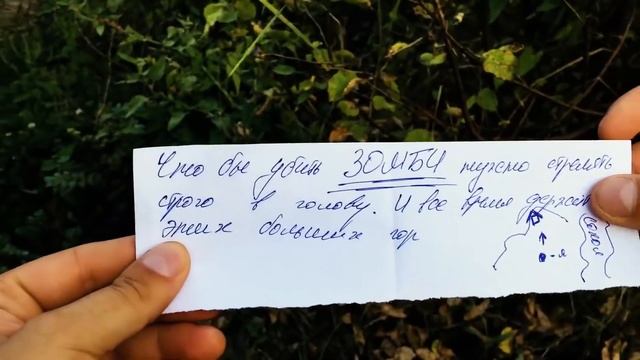 Что бы убить ЗОМБИ нужно стрелять
строго в голову. И все время держат
этих больших гор
- я